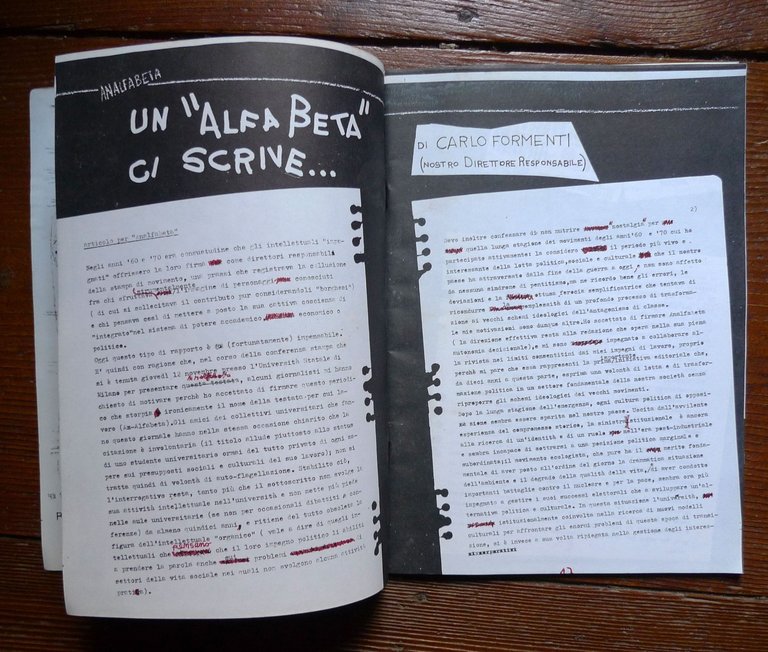 ANALFABETA
UN "ALFA BETA"
CI SCRIVE...
articolo per "Analfabeta"
Negli anni '60 e '70 era consuetudine che gli intellettuali "inte-
grati" offrissero la loro firma come direttori responsabili
della stampa di movimento, una prassi che registrava la collusione
fra chi sfruttava l'immagine di personaggi conosciuti
( di cui si sollecitava il contributo pur considerandoli "borghesi"
e chi pensava così di mettere a posto la sua cattiva coscienza di
"integrato" nel sistema di potere accademico, economico o
politico.
Oggi questo tipo di rapporto è (fortunatamente) impensabile.
E' quindi con ragione che, nel corso della conferenza stampa che
si è tenuta giovedì 12 novembre presso l'Università Statale di
Milano per presentare questa testata, alcuni giornalisti mi hanno
chiesto di motivare perchè ho accettato di firmare questo periodi-
co che storpia ironicamente il nome della testata per cui la-
voro (An-Alfabeta). Gli amici dei collettivi universitari che fan-
no questo giornale hanno nella stessa occasione chiarito che la
citazione è involontaria (il titolo allude piuttosto allo status
di uno studente universitario ormai del tutto privato di ogni sa-
pere sui presupposti sociali e culturali del suo lavoro); non si
tratta quindi di volontà di auto-flagellazione. Stabilito ciò,
l'interrogativo resta, tanto più che il sottoscritto non svolge la
sua attività intellettuale nell'università e non mette più piede
nelle aule universitarie (se non per occasionali dibattiti e con-
ferenze) da almeno quindici anni, e ritiene del tutto obsoleta la
figura dell'intellettuale "organico" ( vale a dire di quegli in-
tellettuali che che il loro impegno politico li abiliti
a prendere la parola anche problemi
settori della vita sociale nei quali non svolgono alcuna attività
pratica).
DI CARLO FORMENTI
(NOSTRO DIRETTORE RESPONSABILE)
2)
Devo inoltre confessare di non nutrire "nostalgia" per
quella lunga stagione dei movimenti degli anni '60 e '70 cui ho
partecipato attivamente: la considero il periodo più vivo e
interessante della lotta politica, sociale e culturale che il nostro
paese ha attraversato dalla fine della guerra a oggi, e non sono affetto
da nessuna sindrome di pentitismo, ma ne ricordo bene gli errori, le
deviazioni e la ottusa ferocia semplificatrice che tentava di
ricondurre la complessità di un profondo processo di trasforma-
zione ai vecchi schemi ideologici dell'antagonismo di classe.
Le mie motivazioni sono dunque altre. Ho accettato di firmare Analfabeta
( la direzione effettiva resta alla redazione che opera nella sua piena
autonomia decisionale), e mi sono impegnato a collaborare al-
la rivista nei limiti consentitimi dai miei impegni di lavoro, proprio
perchè mi pare che essa rappresenti la prima iniziativa editoriale che,
da dieci anni a questa parte, esprima una volontà di lotta e di trasfor-
mazione politica in un settore fondamentale della nostra società senza
riproporre gli schemi ideologici dei vecchi movimenti.
Dopo la lunga stagione dell'emergenza, ogni cultura politica di opposi-
zione sembra essere sparita nel nostro paese. Uscita dall'avvilente
esperienza del compromesso storico, la sinistra istituzionale è ancora
alla ricerca di un'identità e di un ruolo nell'era post-industriale
e sembra incapace di sottrarsi a una posizione politica marginale e
subordinata; il movimento ecologista, che pure ha il merito fonda-
mentale di aver posto all'ordine del giorno la drammatica situazione
dell'ambiente e il degrado della qualità della vita, di aver condotto
importanti battaglie contro il nucleare e per la pace, sembra ora più
impegnato a gestire i suoi successi elettorali che a sviluppare un'al-
ternativa politica e culturale. In questa situazione l'università,
istituzionalmente coinvolta nella ricerca di nuovi modelli
culturali per affrontare gli enormi problemi di questa epoca di transi-
zione, si è invece a sua volta ripiegata nella gestione degli interes-
si corporativi